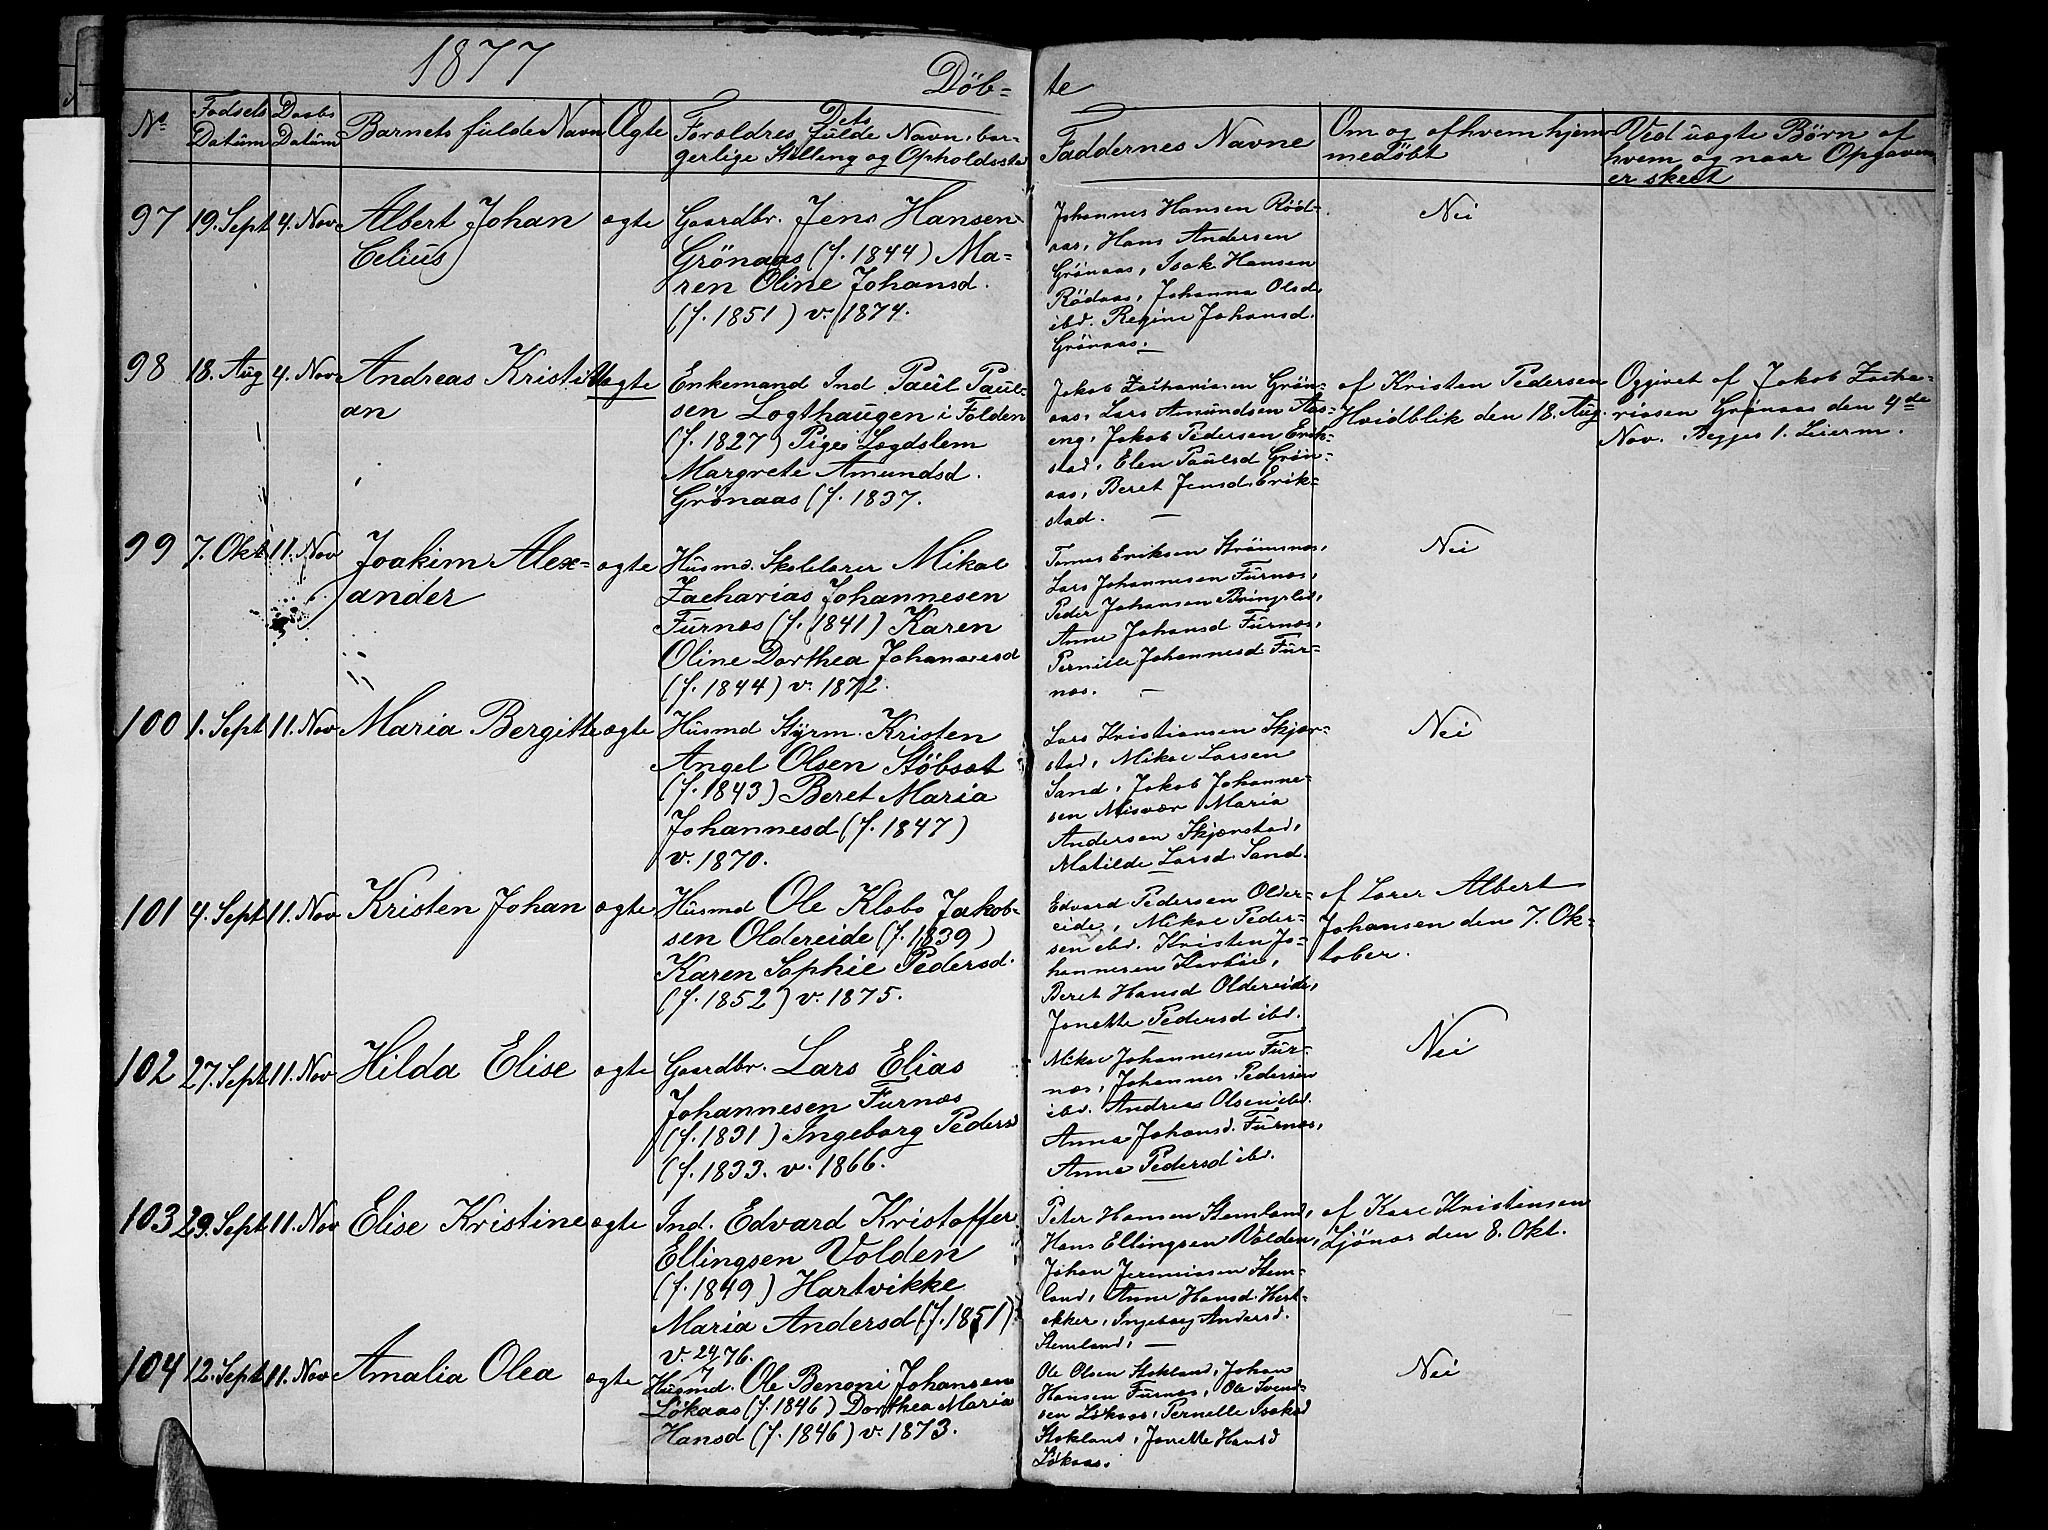 1877
Döb- te
No
Fødsels Datum
Daabs Datum
Barnets fulde Navn
Ægte
Dets
Forældres fulde Navn, bor-
gerlige Stilling og Opholdssted
Faddernes Navne
Om og af hvem hjem-
medöbt
Ved uægte Börn af
hvem og naar Opgaven
er skeet
97 19. Sept 4. Nov Albert Johan
Celius
ægte
Gaardbr. Jens Hansen
Grönaas (f. 1844) Ma-
ren Oline Johansd.
(f. 1851) v. 1874.
Johannes Hansen Röd-
aas, Hans Andersen
Grönaas, Isak Hansen
Rödaas, Johanna Olsd.
ibd. Regine Johansd.
Grönaas.
Nei
98 18. Aug 4. Nov Andreas Kristi-
an
Uægte
Enkemand Ind Paul Paul-
sen Logthaugen i Folden
(f. 1827) Pige Lægdslem
Margrete Amundsd.
Grönaas (f. 1837.
Jakob Zachariasen Grön-
aas, Lars Amundsen Aas-
eng, Jakob Pedersen Erik-
stad, Elen Paulsd Grön-
aas, Beret Jensd. Erik-
stad.
af Kristen Pedersen
Hvidblik den 18. Aug.
Opgivet af Jakob Zacha-
riasen Grönaas den 4de
Nov. Begges 1. Leierm.
99 7. Okt 11. Nov Joakim Alex-
ander
ægte
Husmd. Skolelærer Mikal
Zacharias Johannesen
Furnes (f. 1841) Karen
Oline Dorthea Johannesd
(f. 1844) v. 1872.
Tomas Eriksen Strömsnes,
Lars Johannesen Furnes,
Peder Johansen Bringsli,
Anne Johansd Furnes,
Pernille Johannesd Fur-
nes.
Nei
100 1. Sept 11. Nov Maria Bergitte
ægte
Husmd Styrm. Kristen
Angel Olsen Stöbset
(f. 1843) Beret Maria
Johannesd (f. 1847)
v. 1870.
Lars Kristiansen Skjær-
stad, Mikal Larsen
Sand, Jakob Johanne-
sen Misvær Maria
Andersen Skjærstad,
Matilde Larsd Sand.
Nei
101 4. Sept 11. Nov Kristen Johan
ægte
Husmd Ole Klæbo Jakob-
sen Oldereide (f. 1839)
Karen Sophie Pedersd.
(f. 1852) v. 1875.
Edvard Pedersen Older-
eide, Mikal Peder-
sen ibd. Kristen Jo-
hannesen
Beret Hansd Oldereide,
Jonette Pedersd ibd.
af Lærer Albert
Johansen den 7. Ok-
tober.
102 27. Sept 11. Nov Hilda Elise
ægte
Gaardbr. Lars Elias
Johannesen Furnes
(f. 1831) Ingeborg Pedersd
(f. 1833. v. 1866.
Mikal Johannesen Fur-
nes, Johannes Pedersen
ibd. Andreas Olsen ibd.
Anna Johansd. Furnes,
Anne Pedersd ibd.
Nei
103 29. Sept 11. Nov Elise Kristine
ægte
Ind. Edvard Kristoffer
Ellingsen Volden
(f. 1849) Hartvikke
Maria Andersd (f. 1851)
v. 29/7 76.
Peter Hansen Stemland,
Hans Ellingsen Volden,
Johan Jeremiasen Stem-
land, Anne Hansd. Hest-
ekker, Ingeborg Andersd.
Stemland,
af Karl Kristensen
Ljönes den 8. Okt.
104 12. Sept 11. Nov Amalia Olea
ægte
Husmd. Ole Benoni Johansen
Lökaas (f. 1846) Dorthea Maria
Hansd (f. 1846) v. 1873.
Ole Olsen Stokland, Johan
Hansen Furnes, Ole Svend-
sen Lökaas, Pernelle Isaksd
Stokland, Jonette Hansd
Lökaas.
Nei